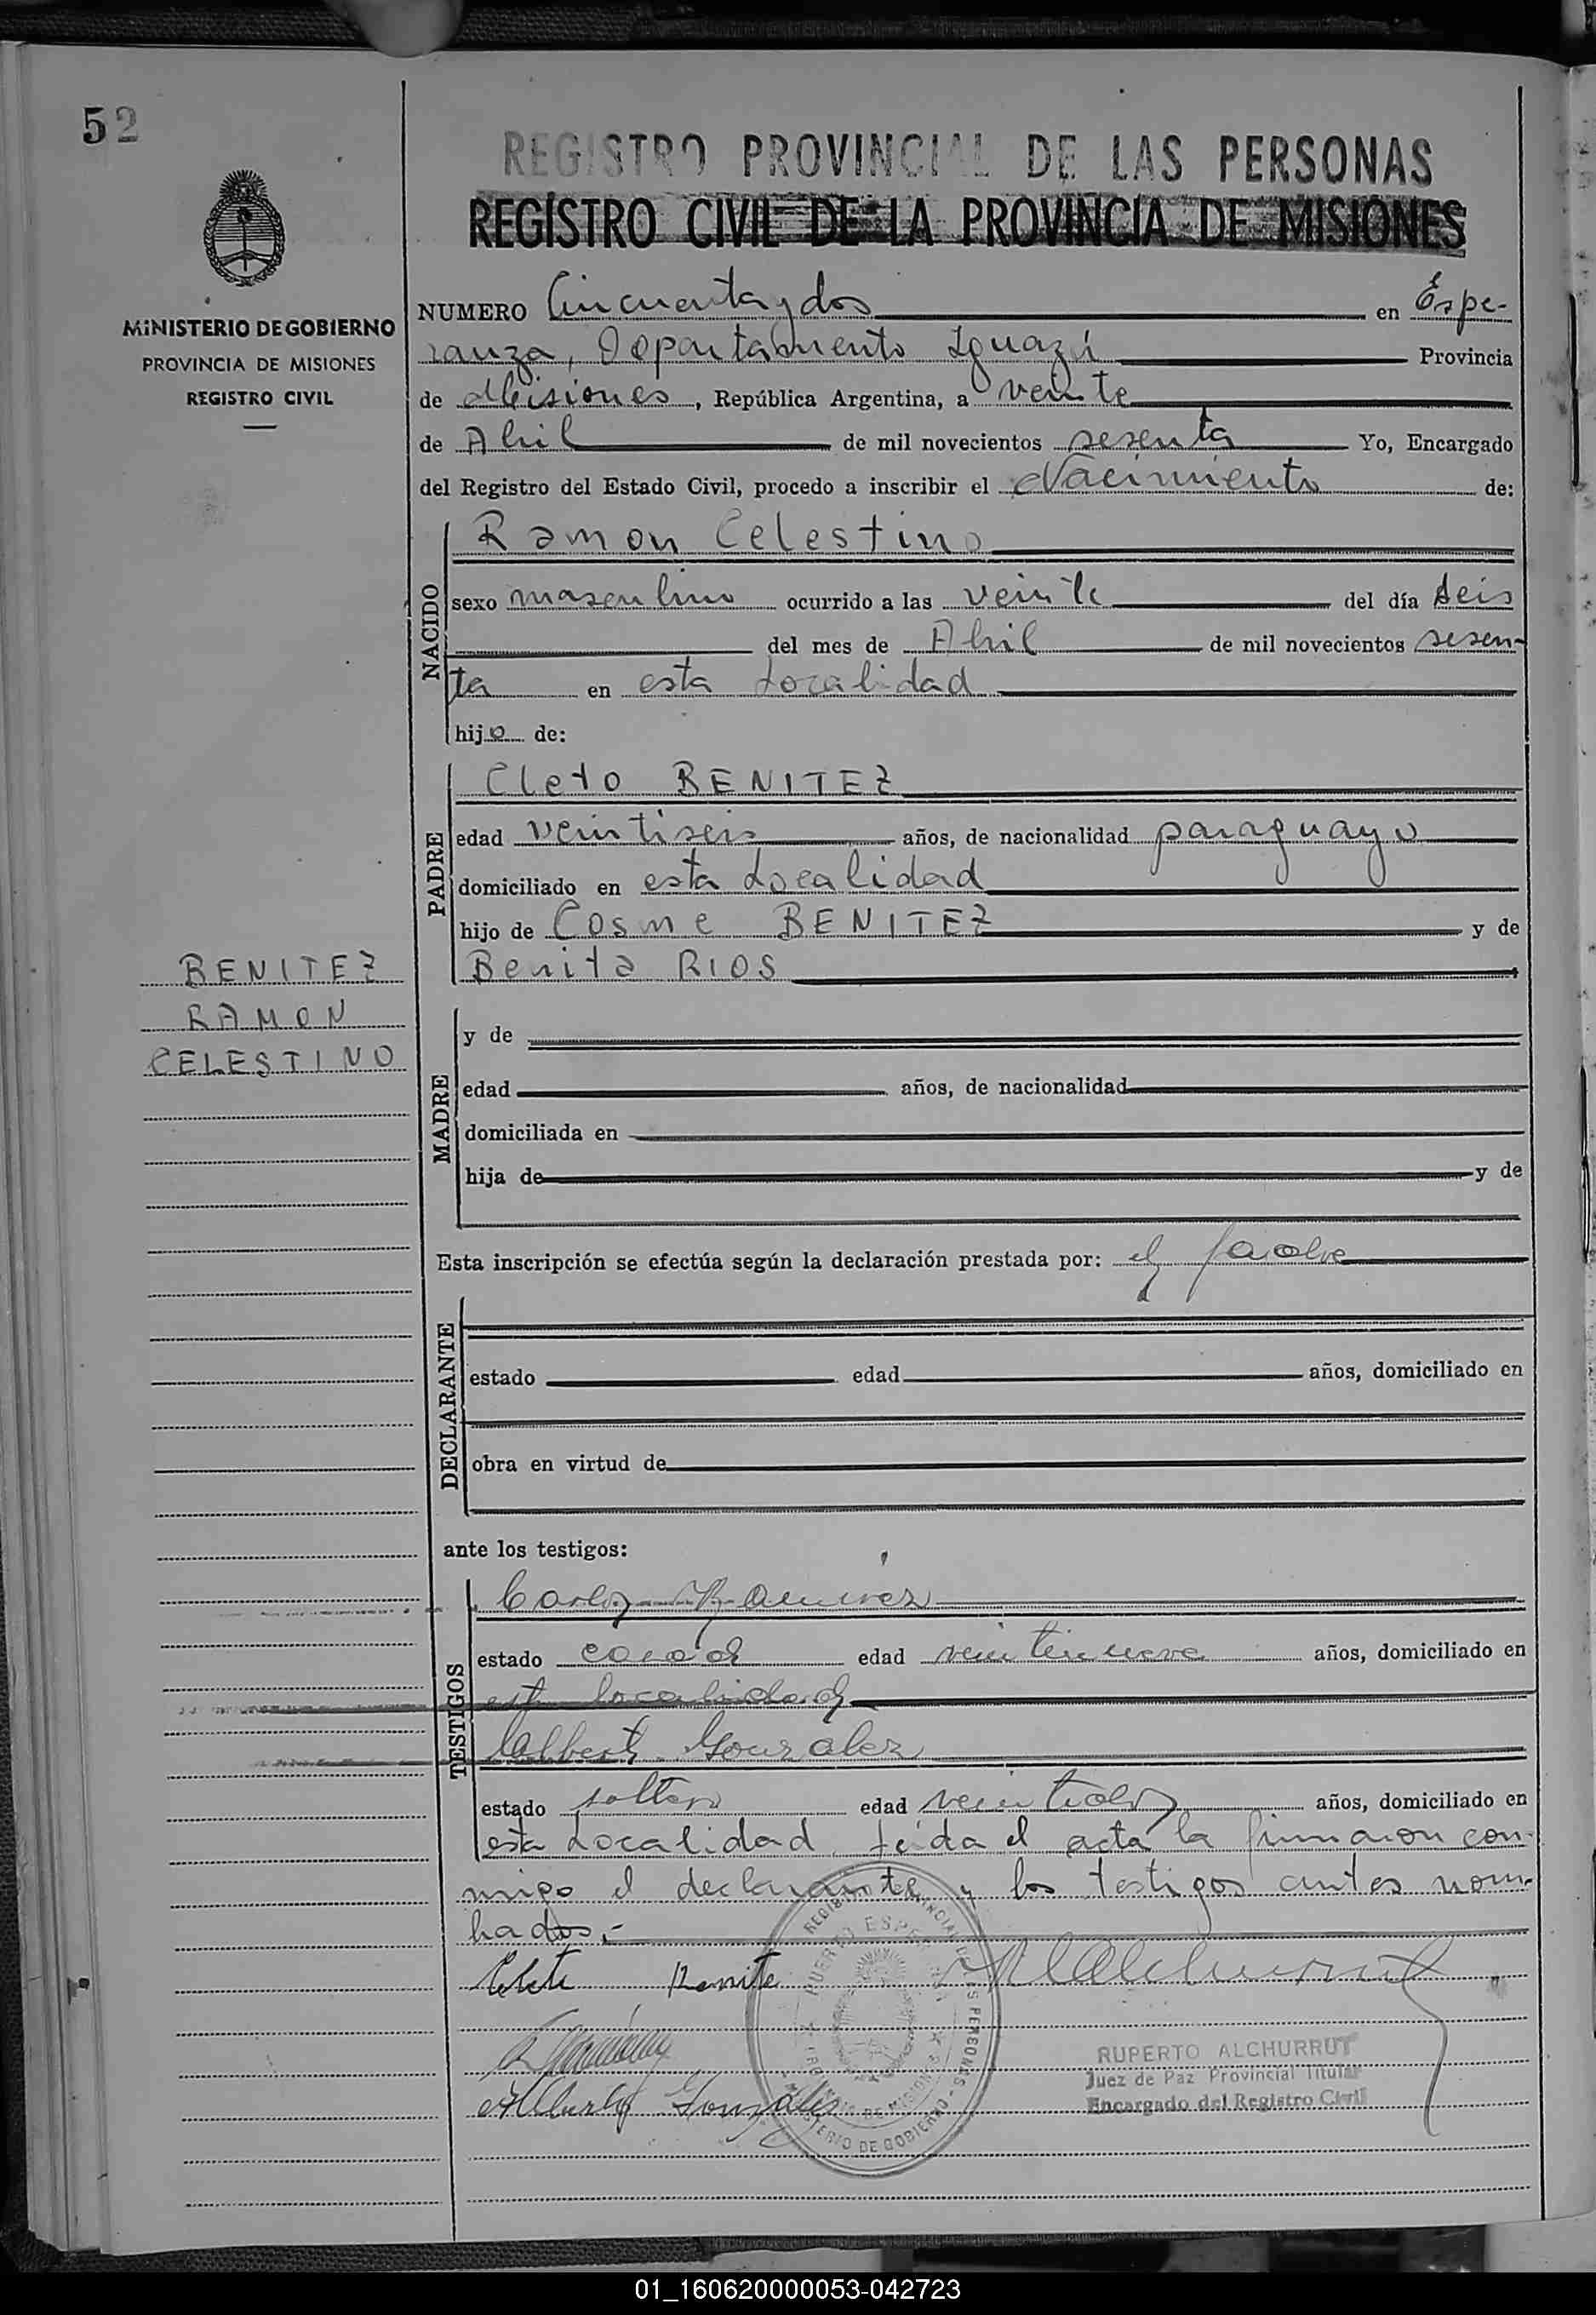 52
REGISTRO PROVINCIAL DE LAS PERSONAS
REGISTRO CIVIL DE LA PROVINCIA DE MISIONES
MINISTERIO DE GOBIERNO
PROVINCIA DE MISIONES
REGISTRO CIVIL
NUMERO Cincuenta y dos en Espe-
ranza, Departamento Iguazú Provincia
de Misiones, República Argentina, a veinte
de Abril de mil novecientos sesenta Yo, Encargado
del Registro del Estado Civil, procedo a inscribir el Nacimiento de:
NACIDO
Ramon Celestino
sexo masculino ocurrido a las veinte del día seis
del mes de Abril de mil novecientos sesen-
ta en esta Localidad
hijo de:
PADRE
Cleto BENITEZ
edad veintiseis años, de nacionalidad paraguayo
domiciliado en esta Localidad
hijo de Cosme BENITEZ y de
Benita RIOS
BENITEZ
RAMON
CELESTINO
MADRE
y de
edad años, de nacionalidad
domiciliada en
hija de y de
Esta inscripción se efectúa según la declaración prestada por: el padre
DECLARANTE
estado edad años, domiciliado en
obra en virtud de
ante los testigos:
TESTIGOS
Carlos Ramirez
estado casado edad veintinueve años, domiciliado en
esta localidad
Alberto Gonzalez
estado soltero edad veintidos años, domiciliado en
esta Localidad. Leída el acta la firmaron con-
migo el declarante y los testigos antes nom-
brados.-
Cleto Benite
Alberto Gonzales
REGISTRO PROVINCIAL DE LAS PERSONAS
PUERTO ESPERANZA
MINISTERIO DE GOBIERNO
RUPERTO ALCHURRUT
Juez de Paz Provincial Titular
Encargado del Registro Civil
01_160620000053-042723